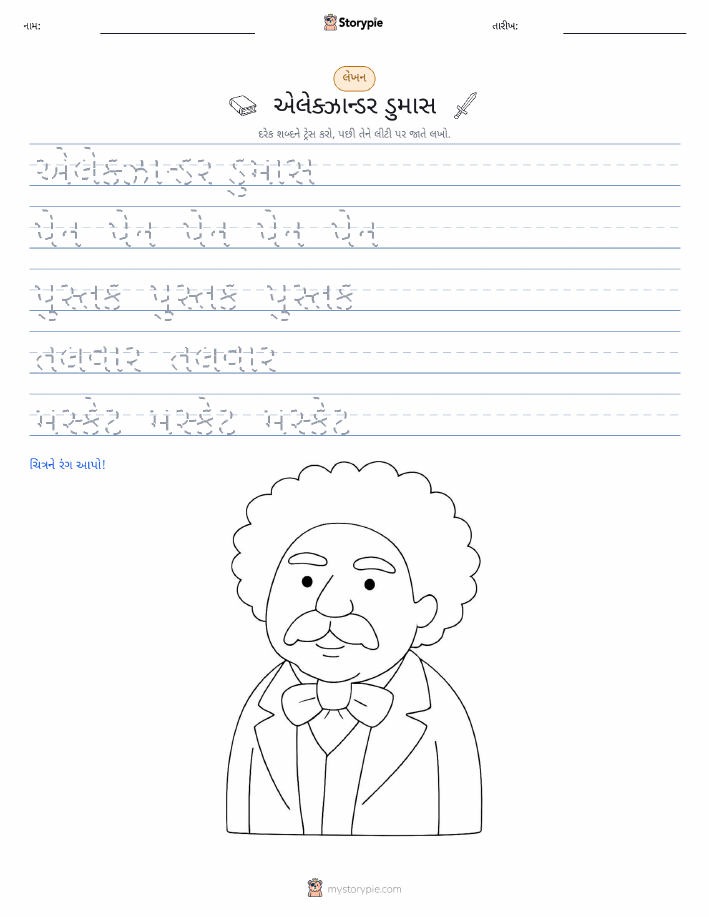 નામ:
Storypie
તારીખ:
લેખન
એલેક્ઝાન્ડર ડુમાસ
દરેક શબ્દને ટ્રેસ કરો, પછી તેને લીટી પર જાતે લખો.
એલેક્ઝાન્ડર ડુમાસ
પેન પેન પેન પેન પેન
પુસ્તક પુસ્તક પુસ્તક
તલવાર તલવાર
મસ્કેટ મસ્કેટ મસ્કેટ
ચિત્રને રંગ આપો!
mystorypie.com